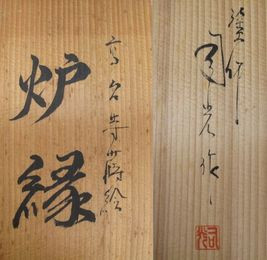 高台寺蒔絵
炉縁
塗師
光作